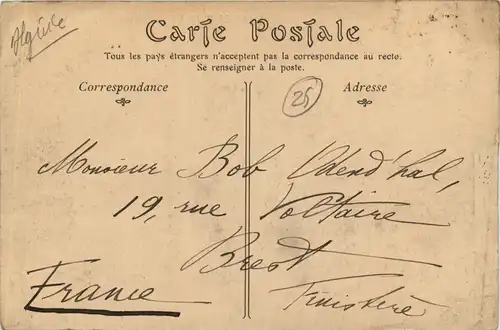 Algérie
Carte Postale
Tous les pays étrangers n'acceptent pas la correspondance au recto.
Se renseigner à la poste.
Correspondance
Adresse
25
Monsieur Bob Odend'hal,
19, rue Voltaire
Brest
Finistère
France